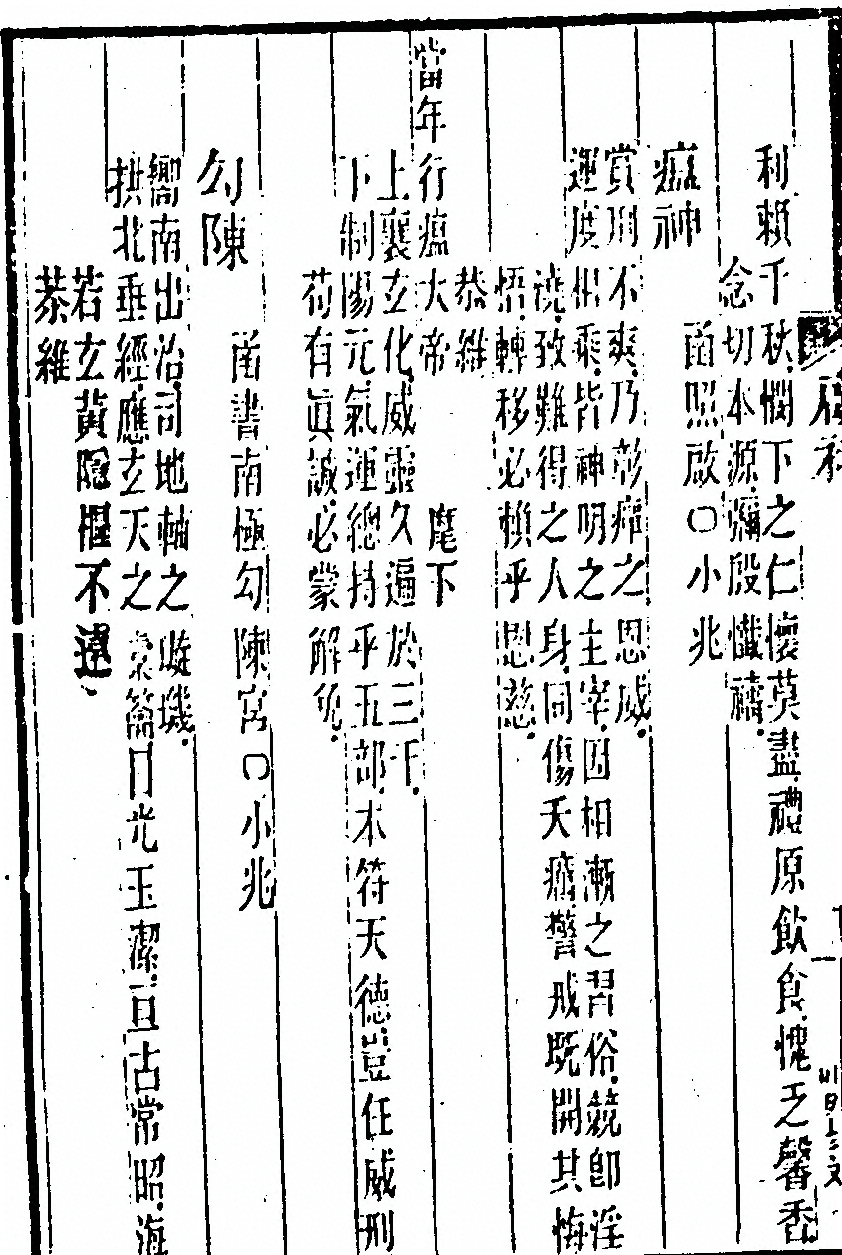 利賴千秋.憫下之仁懷莫盡.禮原飲食.愧乏馨香
念切本源.彌殷懺禱.
函照啟口小兆
瘟神
賞刑不爽.乃彰癉之恩威.
運度相乘.皆神明之主宰.因相漸之習俗.競卽淫
澆.致難得之人身.同傷夭癘.警戒旣開其悔
悟.轉移必賴乎恩慈.
恭維
當年行瘟大帝 麾下
上襄玄化.威靈久遍於三千.
下制陽元.氣運總持乎五部.本符天德.豈任威刑
苟有眞誠.必蒙解免.
函書南極勾陳宮口小兆
勾陳
嚮南出治.司地軸之璇璣.
拱北垂經.應玄天之橐籥.月光玉潔.亘古常昭.海
若玄黃隂不遠
恭維